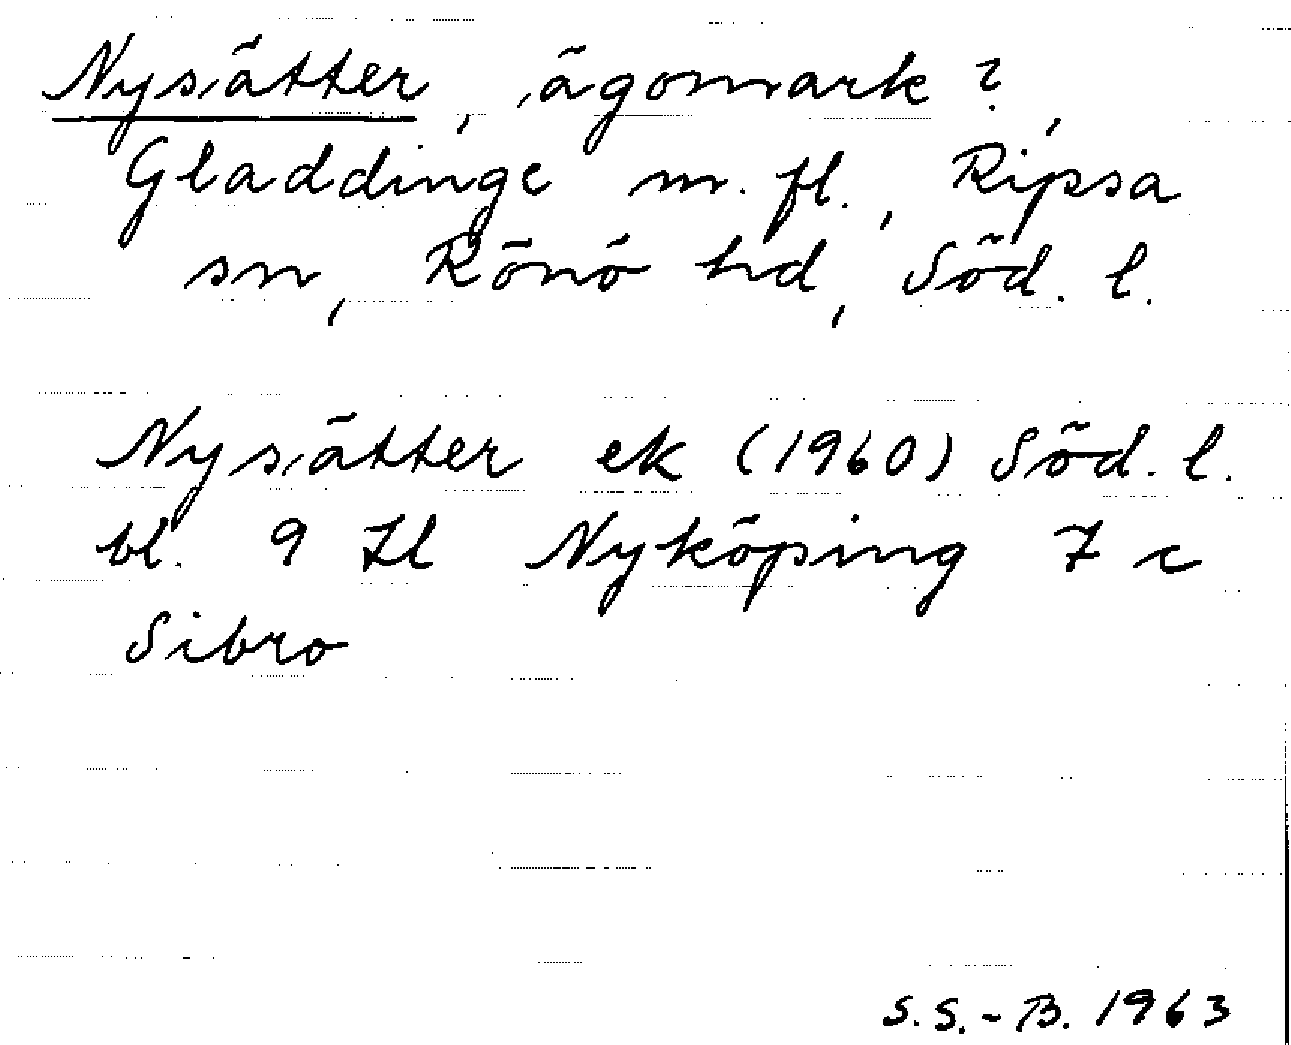 Nysätter, ägomark?,
Gladdinge m. fl., Ripsa
sn, Rönö hd, Söd. l.
Nysätter ek (1960) Söd. l.
bl. 9 Il Nyköping 7 c
Sibro
S.S.-B. 1963